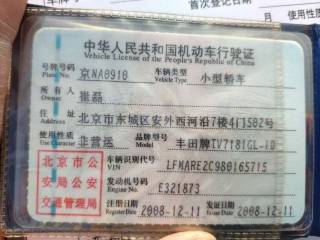 首次登记日期
使用性质
中华人民共和国机动车行驶证
Vehicle License of the People's Republic of China
号牌号码 京NA0910 车辆类型 小型轿车
Plate No. Vehicle Type
所有人 崔磊
Owner
住址 北京市东城区安外西河沿7楼4门502号
Address
使用性质 非营运 品牌型号 丰田牌TV7181GL-iD
Use Character Model
北京市公安局公安交通管理局
车辆识别代号 LFMARE2C980165715
VIN
发动机号码 E321873
Engine No.
注册日期 2008-12-11 发证日期 2008-12-11
Register Date Issue Date